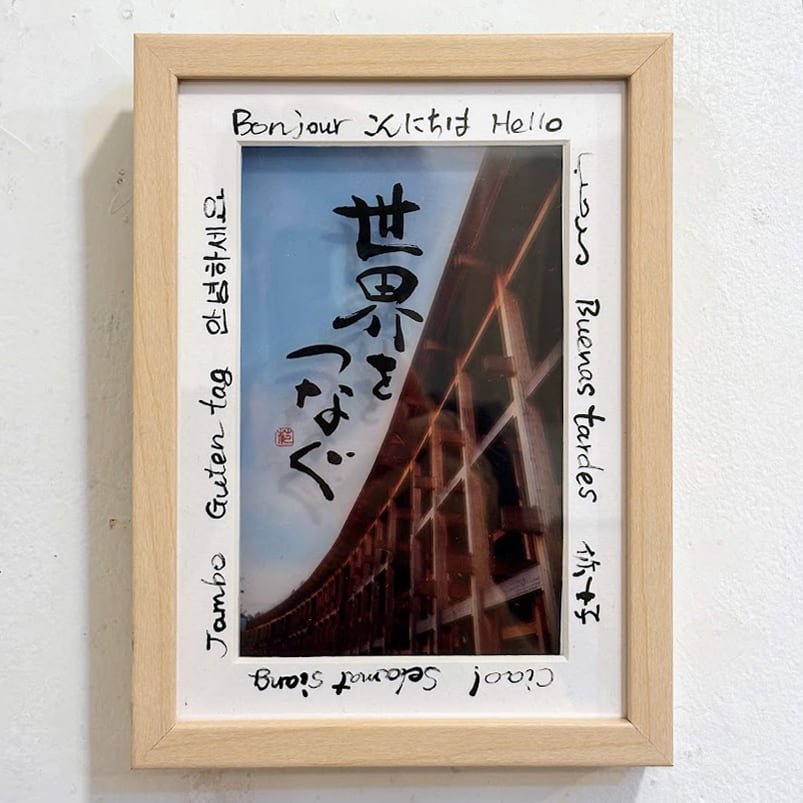 Bonjour こんにちは Hello
Buenas tardes 你好
Ciao! Selamat siang
Jambo Guten tag 안녕하세요
世界を
つなぐ